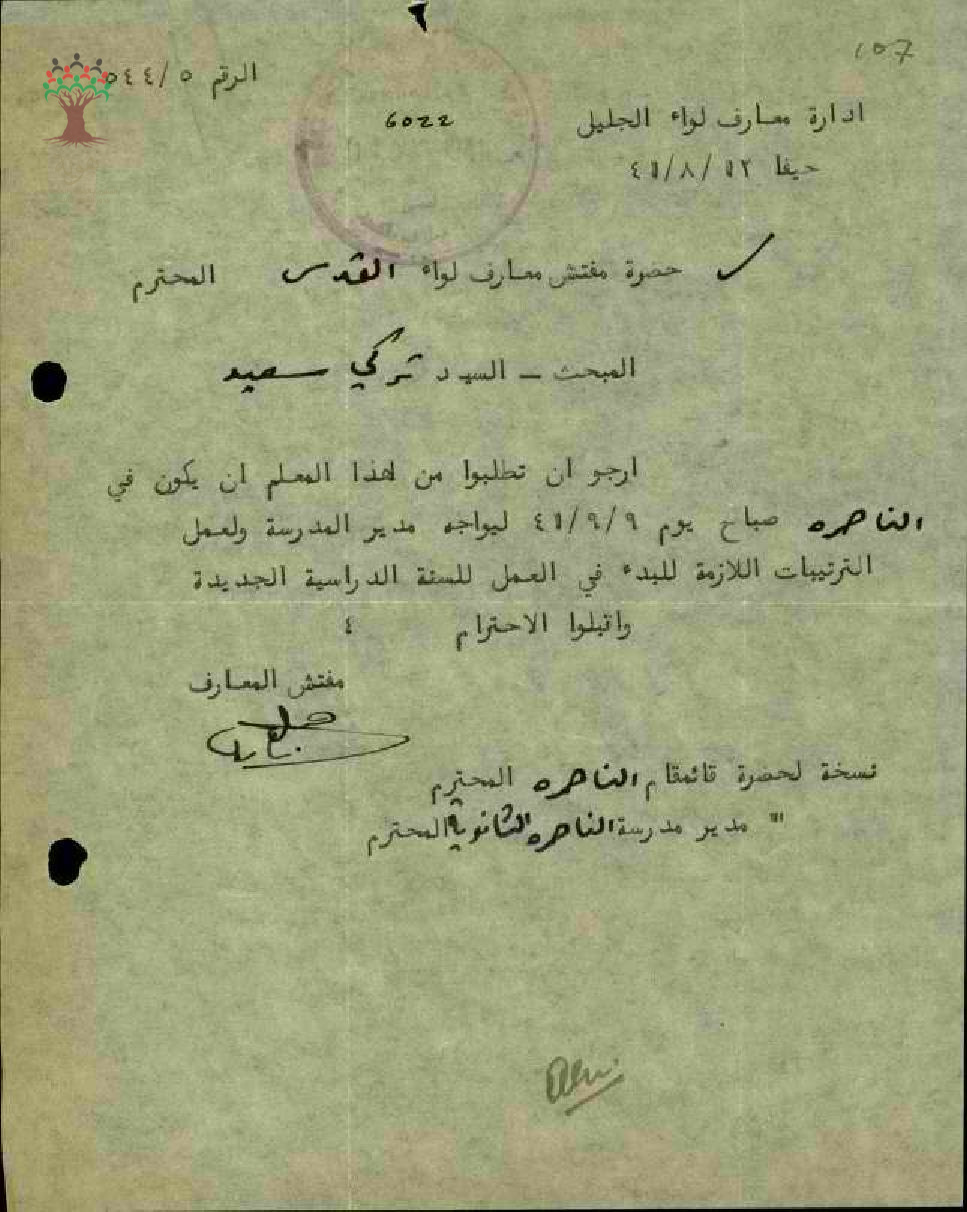 ٦
107
الرقم ٥٤٤/٥
6022
ادارة معارف لواء الجليل
حيفا ٤١/٨/١٢
حضرة مفتش معارف لواء القدس المحترم
المبحث – السيد تركي سعيد
ارجو ان تطلبوا من هذا المعلم ان يكون في
الناصره صباح يوم ٤١/٩/٩ ليواجه مدير المدرسة ولعمل
الترتيبات اللازمة للبدء في العمل للسنة الدراسية الجديدة
واقبلوا الاحترام ٤
مفتش المعارف
نسخة لحضرة قائمقام الناصره المحترم
" مدير مدرسة الناصره الثانوية المحترم